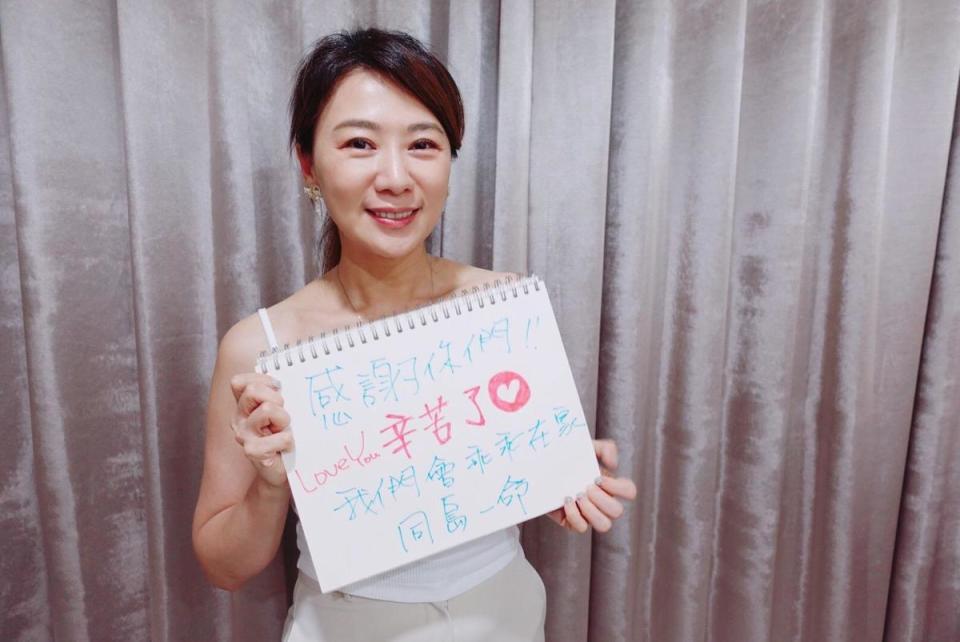 感謝你們!!
Love You 辛苦了
我們會乖乖在家
同島一命